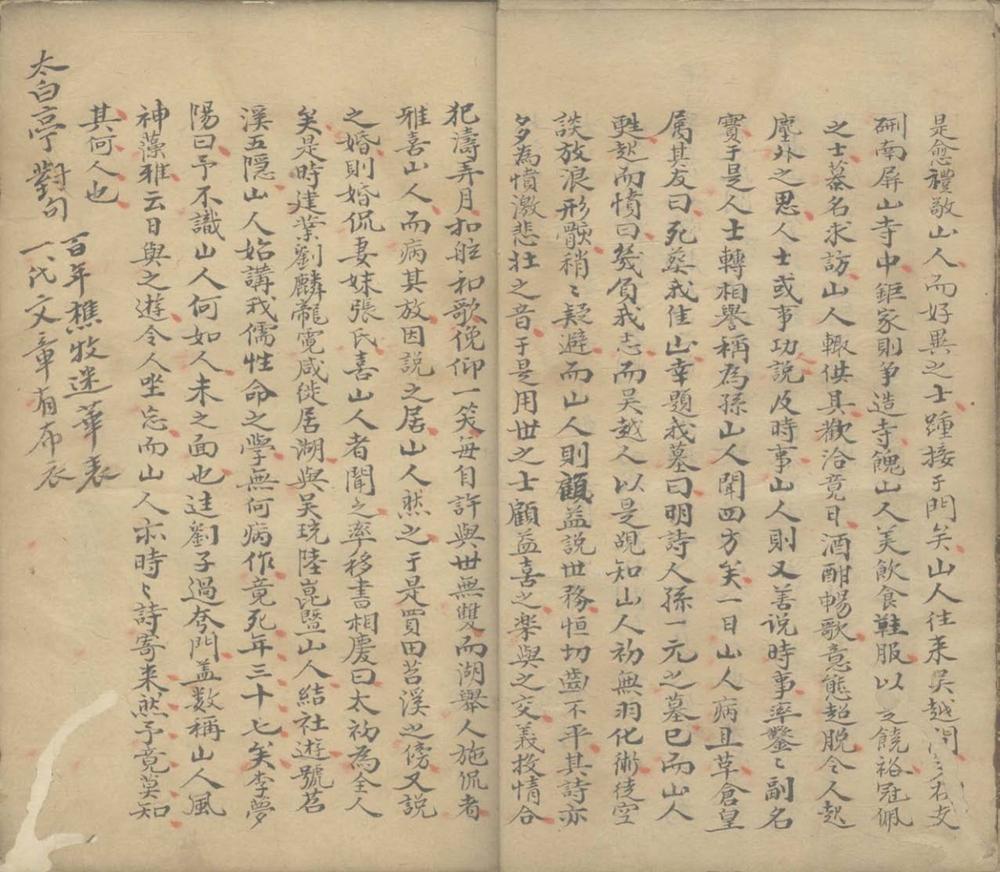 是愈禮敬山人而好異之士踵接于門矣山人往来吳越間多右支
硎南屏山寺中鉅家則争造寺餽山人美飲食鞋服以之饒裕冠佩
之士慕名求訪山人輙供具歡洽竟日酒酣暢歌意態超脱令人起
塵外之思人士或事功説及時事山人則又善説時事率鑿〻副名
實于是人士轉相譽稱為孫山人聞四方矣一日山人病且草倉皇
属其友曰死葬我佳山幸題我墓曰明詩人孫一元之墓已而山人
甦起而憤曰幾負我志而吳越人以是覘知山人初無羽化術徒空
談放浪形骸稍〻疑避而山人則顧益説世務恒切齒不平其詩亦
多為憤激悲壮之音于是用世之士顧益喜之樂與之交義投情合
犯濤弄月扣舷和歌俛仰一笑每自許與世無雙而湖舉人施侃者
雅喜山人而病其放因説之居山人然之于是買田苕溪之傍又説
之婚則婚侃妻妹張氏喜山人者聞之率移書相慶曰太初為全人
矣是時建業劉麟龍霓咸徙居湖與吳珫陸崑暨山人結社遊號苕
溪五隠山人始講我儒性命之學無何病作竟死年三十七矣李夢
陽曰予不識山人何如人未之面也迋劉子過夸門盖数稱山人風
神藻雅云日與之遊令人坐忘而山人亦時〻詩寄来然予竟莫知
其何人也
太白亭對句
百年樵牧迷華表
一代文章有布衣